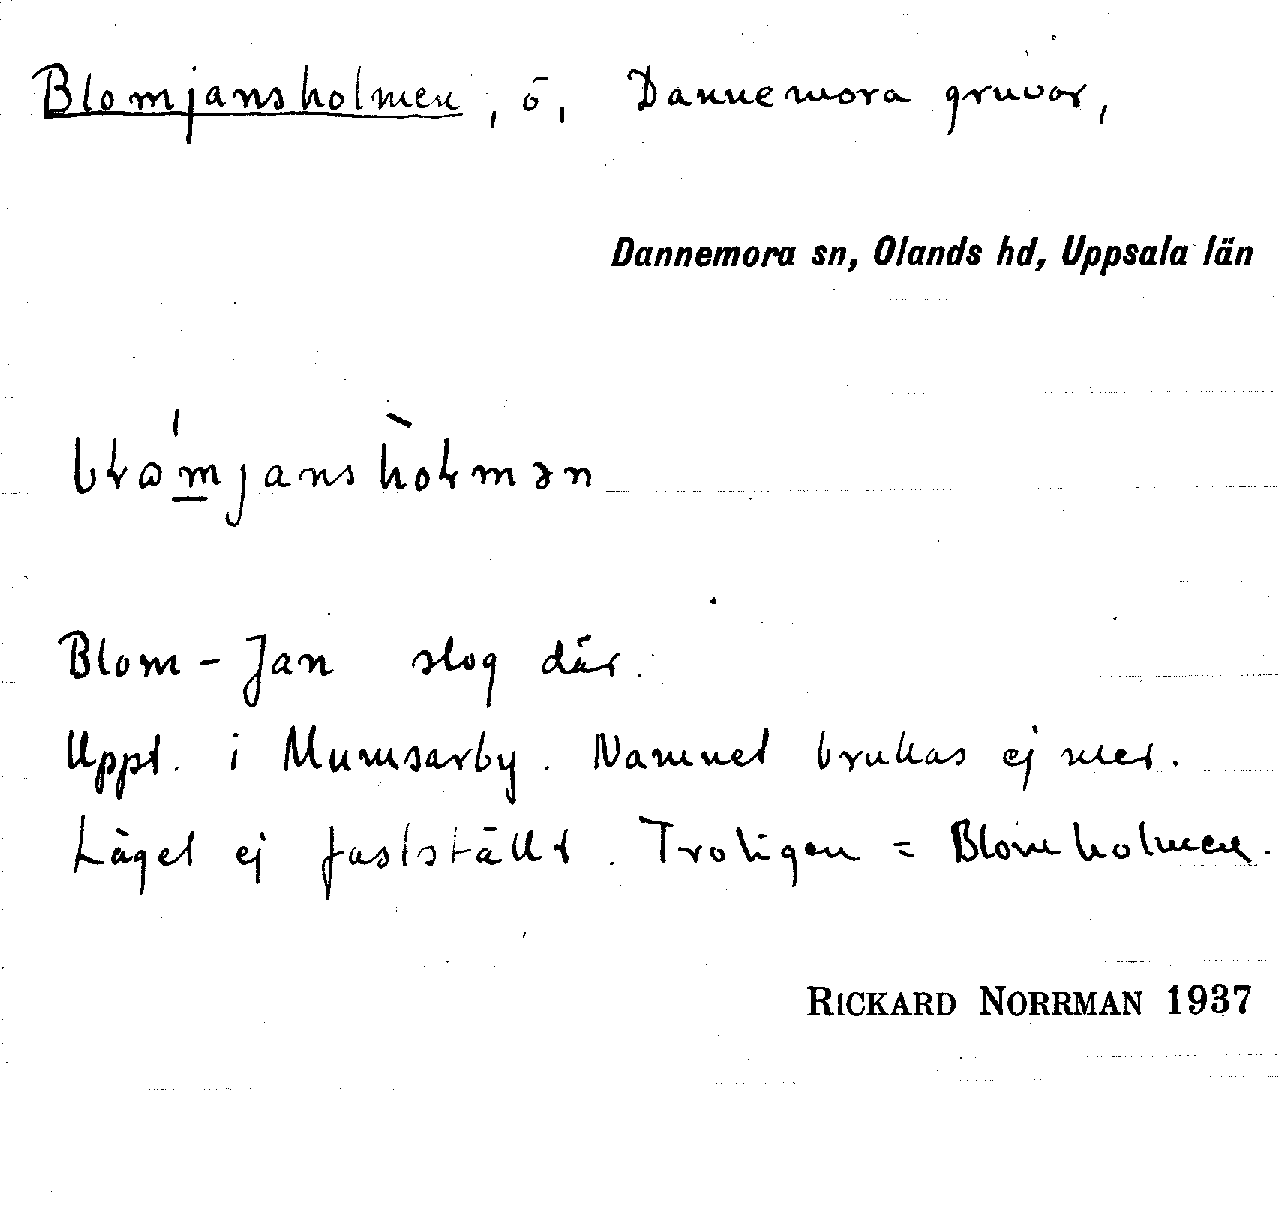 Blomjansholmen, ö, Dannemora gruvor,
Dannemora sn, Olands hd, Uppsala län
Blom-Jan slog där.
Uppt. i Mumsarby. Namnet brukas ej mer.
Läget ej fastställt. Troligen = Blomholmen.
RICKARD NORRMAN 1937